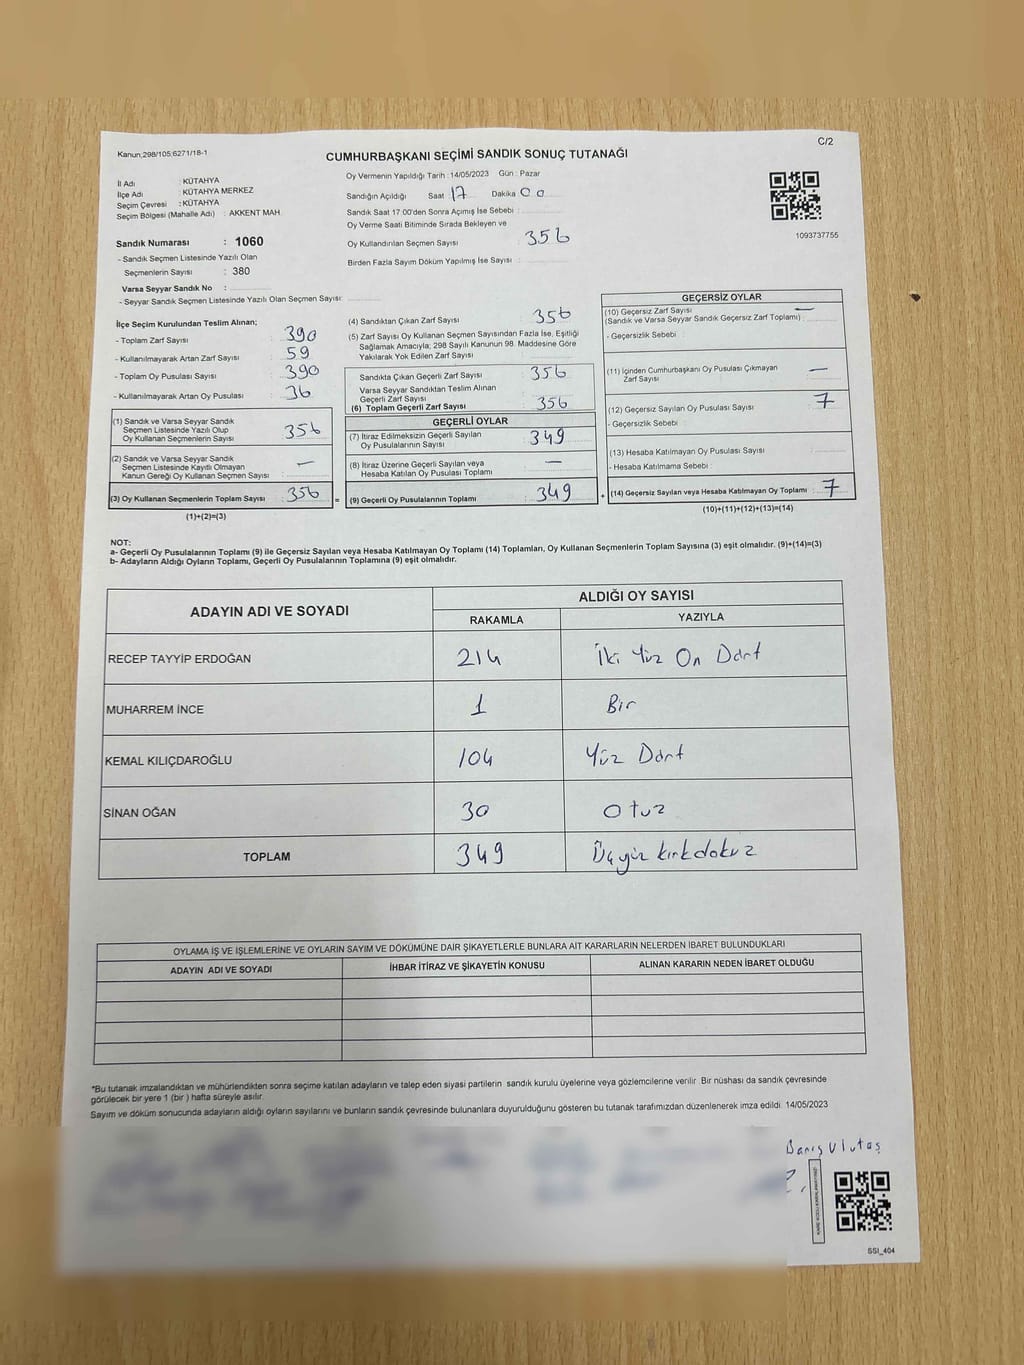 C/2
Kanun;298/105;6271/18-1
CUMHURBAŞKANI SEÇİMİ SANDIK SONUÇ TUTANAĞI
İl Adı : KÜTAHYA
İlçe Adı : KÜTAHYA MERKEZ
Seçim Çevresi : KÜTAHYA
Seçim Bölgesi (Mahalle Adı) : AKKENT MAH
Sandık Numarası : 1060
- Sandık Seçmen Listesinde Yazılı Olan
Seçmenlerin Sayısı : 380
Varsa Seyyar Sandık No :
- Seyyar Sandık Seçmen Listesinde Yazılı Olan Seçmen Sayısı:
Oy Vermenin Yapıldığı Tarih :14/05/2023 Gün : Pazar
Sandığın Açıldığı Saat 17 Dakika 00
Sandık Saat 17:00'den Sonra Açımış İse Sebebi :
Oy Verme Saati Bitiminde Sırada Bekleyen ve
Oy Kullandırılan Seçmen Sayısı 356
Birden Fazla Sayım Döküm Yapılmış İse Sayısı :
1093737755
İlçe Seçim Kurulundan Teslim Alınan;
- Toplam Zarf Sayısı : 390
- Kullanılmayarak Artan Zarf Sayısı : 59
- Toplam Oy Pusulası Sayısı : 390
- Kullanılmayarak Artan Oy Pusulası : 36
(1) Sandık ve Varsa Seyyar Sandık
Seçmen Listesinde Yazılı Olup
Oy Kullanan Seçmenlerin Sayısı : 356
(2) Sandık ve Varsa Seyyar Sandık
Seçmen Listesinde Kayıtlı Olmayan
Kanun Gereği Oy Kullanan Seçmen Sayısı : —
(3) Oy Kullanan Seçmenlerin Toplam Sayısı : 356
(1)+(2)=(3)
=
(4) Sandıktan Çıkan Zarf Sayısı : 356
(5) Zarf Sayısı Oy Kullanan Seçmen Sayısından Fazla İse, Eşitliği
Sağlamak Amacıyla; 298 Sayılı Kanunun 98. Maddesine Göre
Yakılarak Yok Edilen Zarf Sayısı :
Sandıkta Çıkan Geçerli Zarf Sayısı : 356
Varsa Seyyar Sandıktan Teslim Alınan
Geçerli Zarf Sayısı :
(6) Toplam Geçerli Zarf Sayısı : 356
GEÇERLİ OYLAR
(7) İtiraz Edilmeksizin Geçerli Sayılan
Oy Pusulalarının Sayısı : 349
(8) İtiraz Üzerine Geçerli Sayılan veya
Hesaba Katılan Oy Pusulası Toplamı : —
(9) Geçerli Oy Pusulalarının Toplamı : 349
+
GEÇERSİZ OYLAR
(10) Geçersiz Zarf Sayısı —
(Sandık ve Varsa Seyyar Sandık Geçersiz Zarf Toplamı) :
- Geçersizlik Sebebi :
(11) İçinden Cumhurbaşkanı Oy Pusulası Çıkmayan
Zarf Sayısı : —
(12) Geçersiz Sayılan Oy Pusulası Sayısı : 7
- Geçersizlik Sebebi :
(13) Hesaba Katılmayan Oy Pusulası Sayısı :
- Hesaba Katılmama Sebebi :
(14) Geçersiz Sayılan veya Hesaba Katılmayan Oy Toplamı : 7
(10)+(11)+(12)+(13)=(14)
NOT:
a- Geçerli Oy Pusulalarının Toplamı (9) ile Geçersiz Sayılan veya Hesaba Katılmayan Oy Toplamı (14) Toplamları, Oy Kullanan Seçmenlerin Toplam Sayısına (3) eşit olmalıdır. (9)+(14)=(3)
b- Adayların Aldığı Oyların Toplamı, Geçerli Oy Pusulalarının Toplamına (9) eşit olmalıdır.
ADAYIN ADI VE SOYADI ALDIĞI OY SAYISI
RAKAMLA YAZIYLA
RECEP TAYYİP ERDOĞAN 214 İki Yüz On Dört
MUHARREM İNCE 1 Bir
KEMAL KILIÇDAROĞLU 104 Yüz Dört
SİNAN OĞAN 30 Otuz
TOPLAM 349 Üçyüz kırkdokuz
OYLAMA İŞ VE İŞLEMLERİNE VE OYLARIN SAYIM VE DÖKÜMÜNE DAİR ŞİKAYETLERLE BUNLARA AİT KARARLARIN NELERDEN İBARET BULUNDUKLARI
ADAYIN ADI VE SOYADI İHBAR İTİRAZ VE ŞİKAYETİN KONUSU ALINAN KARARIN NEDEN İBARET OLDUĞU
*Bu tutanak imzalandıktan ve mühürlendikten sonra seçime katılan adayların ve talep eden siyasi partilerin sandık kurulu üyelerine veya gözlemcilerine verilir. Bir nüshası da sandık çevresinde
görülecek bir yere 1 (bir ) hafta süreyle asılır.
Sayım ve döküm sonucunda adayların aldığı oyların sayılarını ve bunların sandık çevresinde bulunanlara duyurulduğunu gösteren bu tutanak tarafımızdan düzenlenerek imza edildi. 14/05/2023
Barış Ulutaş
SSI_404